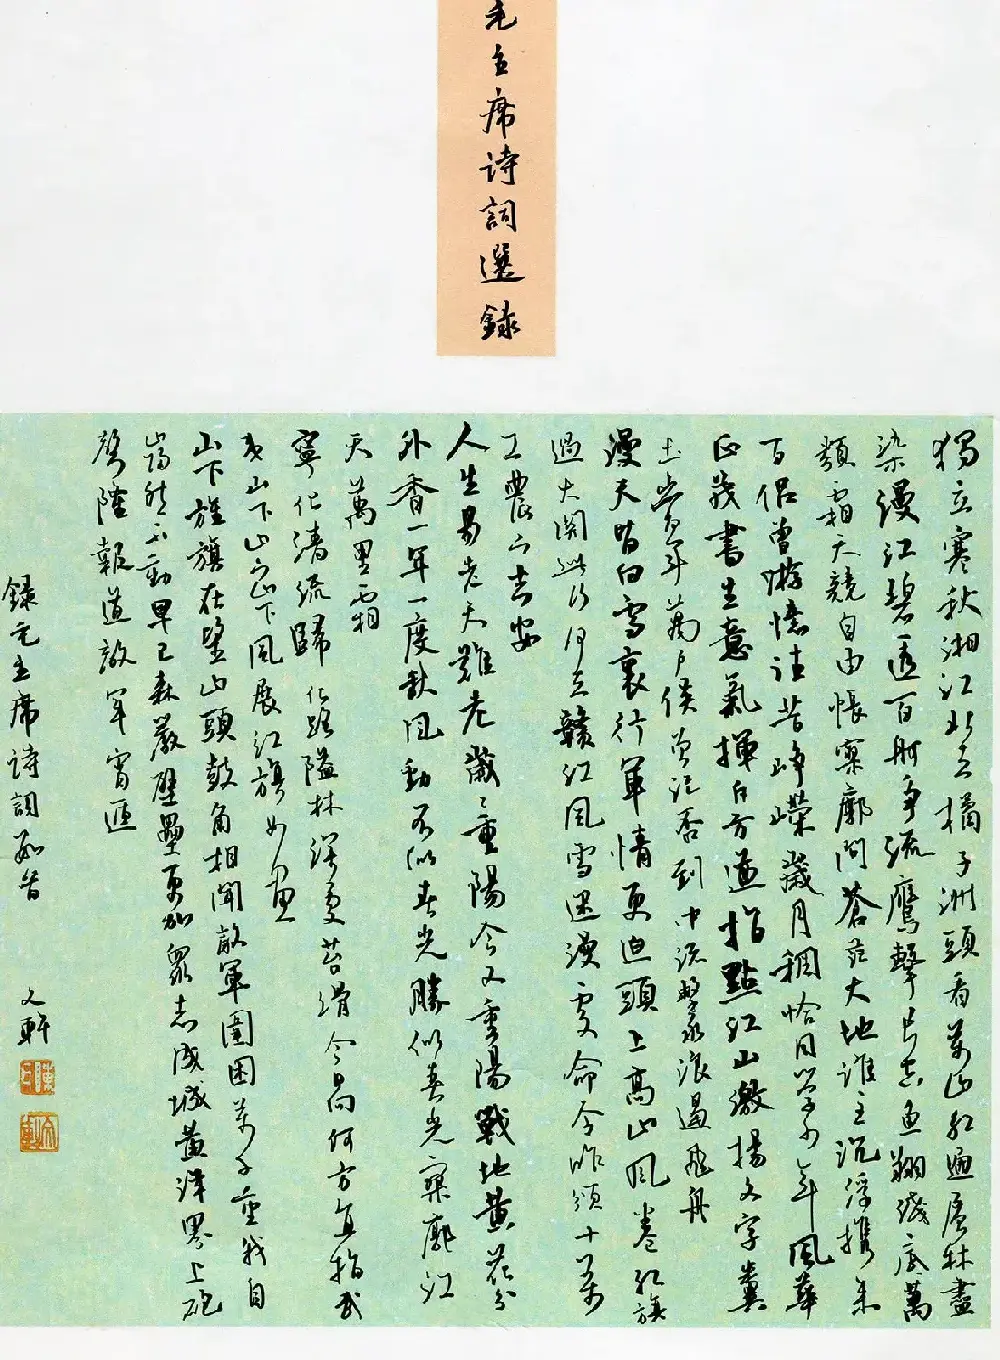 毛主席诗詞選録
獨立寒秋湘江北去橘子洲頭看萬山紅遍層林盡
染漫江碧透百舸争流鷹擊長空魚翔淺底萬
類霜天競自由悵寥廓問蒼茫大地誰主沉浮携来
百侣曾遊憶往昔崢嶸歲月稠恰同學少年風華
正茂書生意氣揮斥方遒指點江山激揚文字糞
土當年萬户侯曾記否到中流擊水浪遏飛舟
漫天皆白雪裏行軍情更迫頭上高山風卷紅旗
過大關此行何去贛江風雪迷漫處命令昨頒十萬
工農下吉安
人生易老天難老歲々重陽今又重陽戰地黄花分
外香一年一度秋風勁不似春光勝似春光寥廓江
天萬里霜
寧化清流歸化路隘林深更苔滑今日向何方直指武
夷山下山下山下風展紅旗如畫
山下旌旗在望山頭鼓角相聞敵軍圍困萬千重我自
巋然不動早已森嚴壁壘更加衆志成城黄洋界上砲
聲隆報道敵軍宵遁
録毛主席诗詞數首 文軒